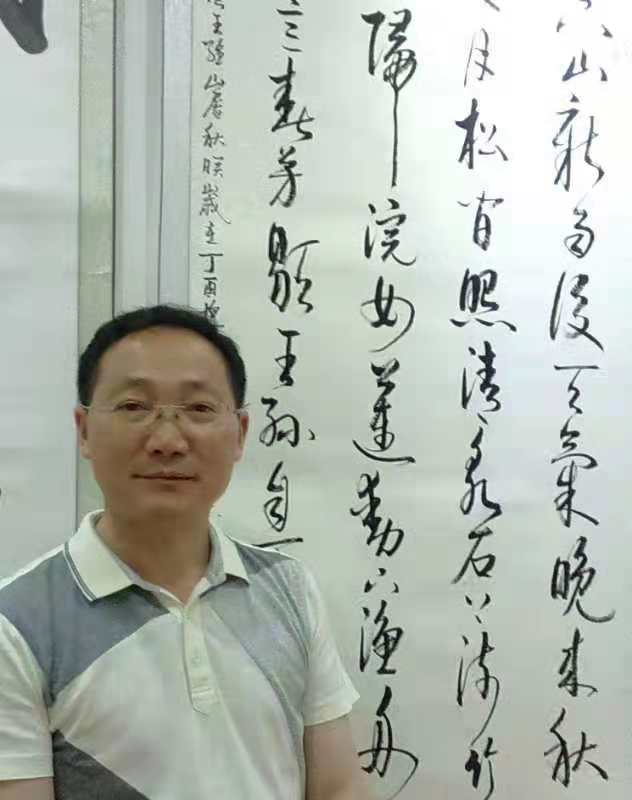 空山新雨後天氣晚來秋
月松間照清泉石上流竹
歸浣女蓮動下漁舟
意春芳歇王孫自
王維山居秋暝歲在丁酉